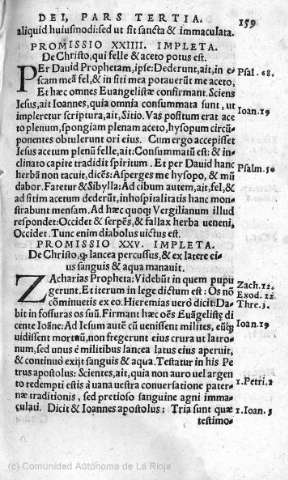 DEI, PARS TERTIA. 159
aliquid huiusmodi: sed ut sit sancta & immaculata.
PROMISSIO XXIIII. IMPLETA.
De Christo, qui felle & aceto potus est.
Per Dauid Prophetam, ipse: Dederunt, ait, in e- Psal. 68.
scam meã fel, & in siti mea potauerũt me aceto,
Et hæc omnes Euangelistæ confirmant. Sciens
Iesus, ait Ioannes, quia omnia consummata sunt, ut Ioan. 19
impleretur scriptura, ait, Sitio. Vas positum erat ace
to plenum, spongiam plenam aceto, hysopum circũ
ponentes obtulerunt ori eius. Cum ergo accepisset
Iesus acetum plenũ felle, ait: Consummatũ est: & in-
clinato capite tradidit spiritum. Et per Dauid hanc
herbã non tacuit, dicẽs: Asperges me hysopo, & mũ Psalm. 50
dabor. Fatetur & Sibylla: Ad cibum autem, ait, fel, &
ad sitim acetum dederũt, inhospitalitatis hanc mon-
strabunt mensam. Ad hæc quoq; Vergilianum illud
respondet: Occidet & serpẽs, & fallax herba ueneni,
Occidet. Tunc enim diabolus uictus est.
PROMISSIO XXV. IMPLETA.
De Christo, q; lancea percussus, & ex latere e-
ius sanguis & aqua manauit.
Zacharias Propheta: Videbũt in quem pupu Zach. 12.
gerunt. Et iterum in lege dictum est: Os nõ Exod. 12
cõminuetis ex eo. Hieremias uero dicit: Da- Thre. 3.
bit in fossuras os suũ. Firmant hæc oẽs Euãgelistę di
cente Ioãne: Ad Iesum autẽ cũ uenissent milites, eũq; Ioan. 19
uidissent mortuũ, non fregerunt eius crura ut latro-
num, sed unus è militibus lancea latus eius aperuit,
& continuò exijt sanguis & aqua. Testatur in his Pe
trus apostolus: Scientes, ait, quia non auro uel argen
to redempti estis à uana uestra conuersatione pater- 1. Petri. 1
næ traditionis, sed pretioso sanguine agni imma-
culati. Dicit & Ioannes apostolus: Tria sunt quæ 1. Ioan. 5
testimo-
(c) Comunidad Autónoma de La Rioja